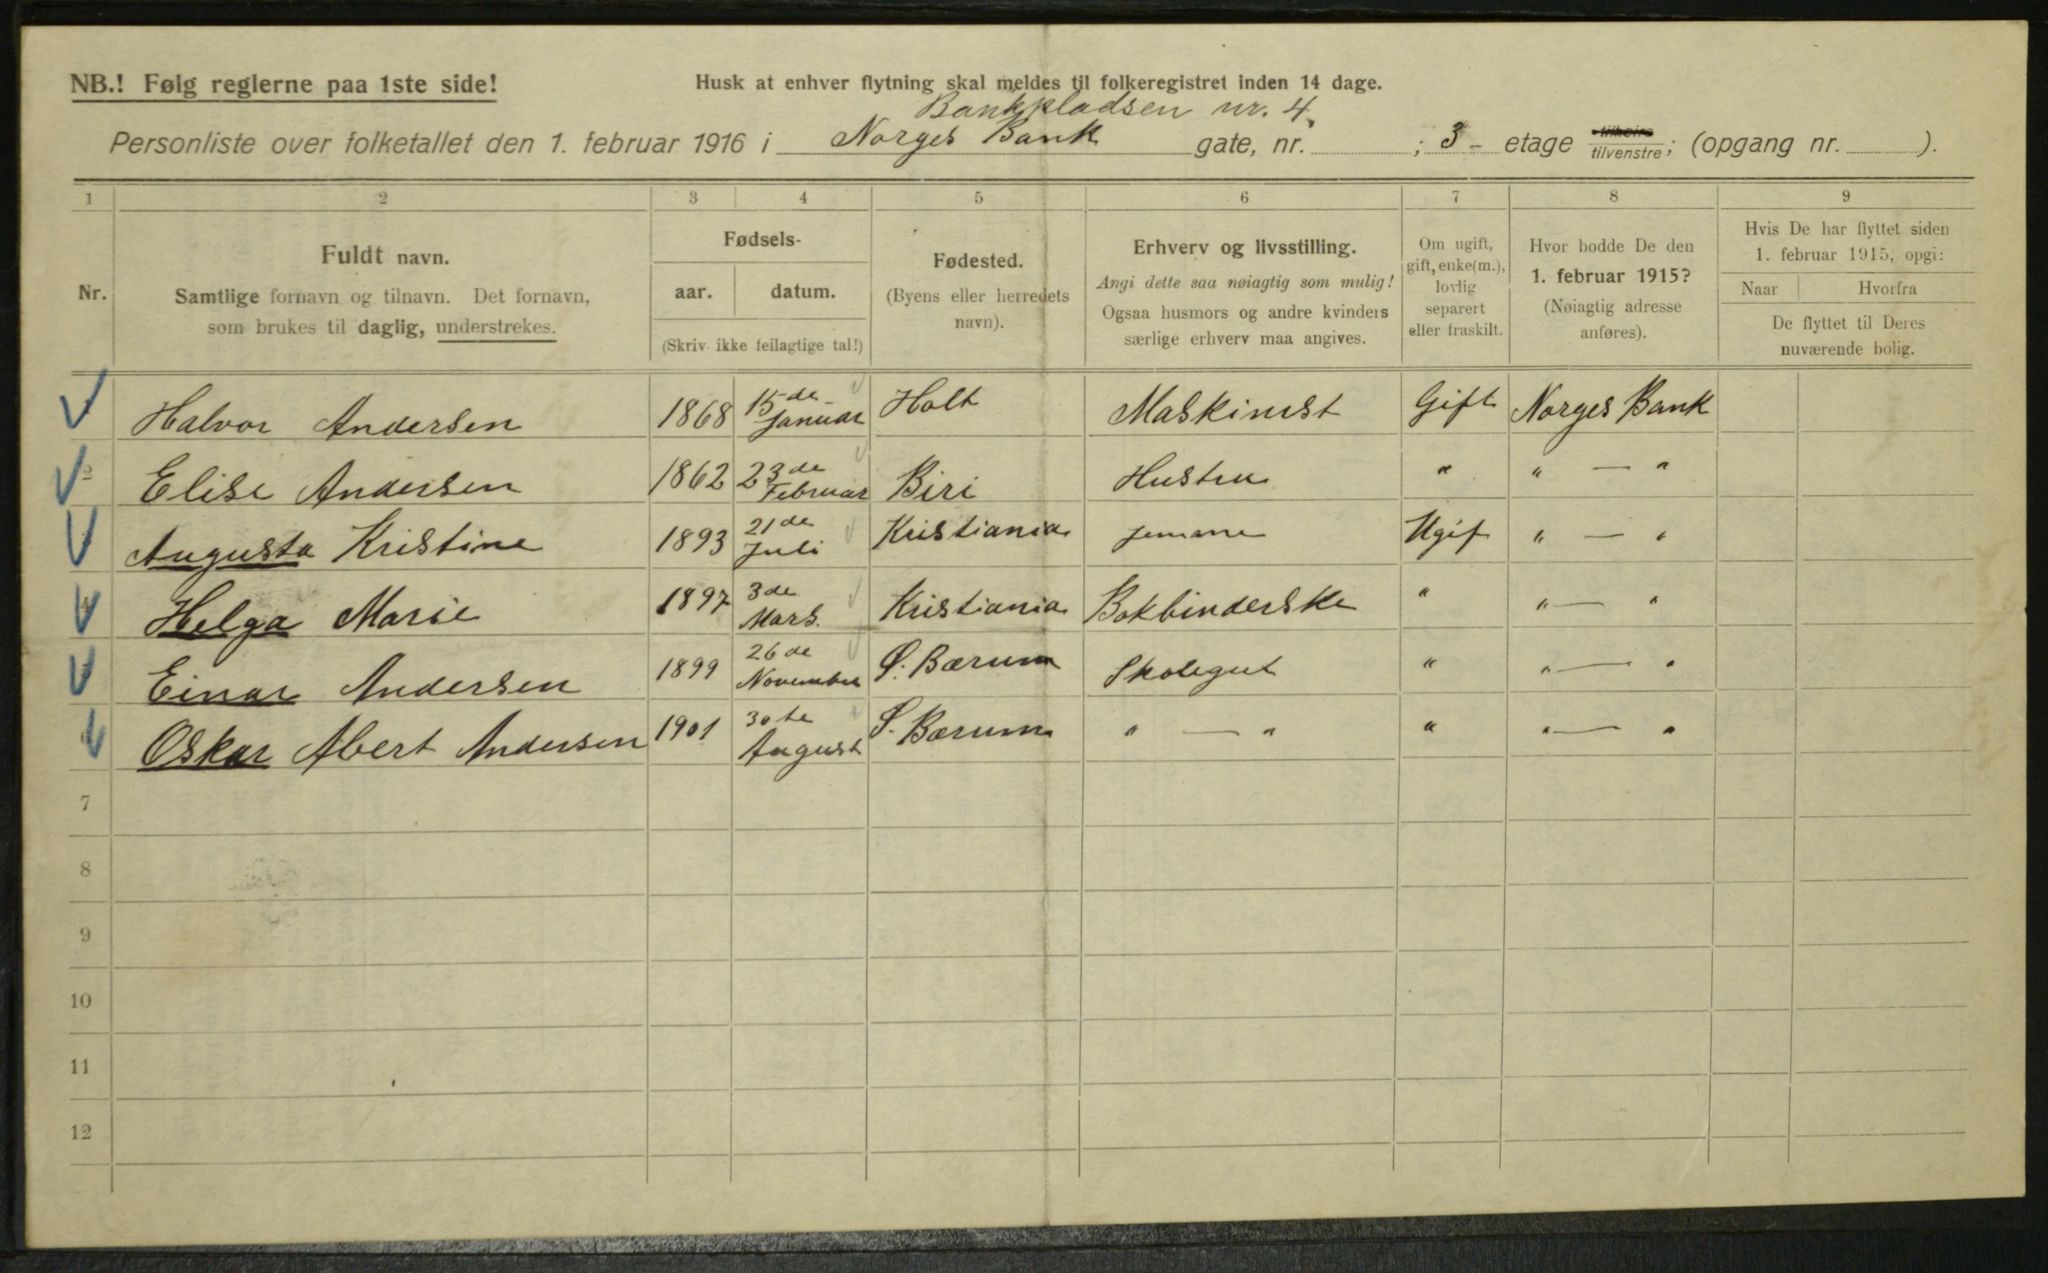 NB.! Følg reglerne paa 1ste side!
Husk at enhver flytning skal meldes til folkeregistret inden 14 dage.
Bankpladsen nr. 4.
Personliste over folketallet den 1. februar 1916 i Norges Bank gate, nr. ; 3- etage tilhøire tilvenstre; (opgang nr. ).
1 2 3 4 5 6 7 8 9
Nr.
Fuldt navn.
Samtlige fornavn og tilnavn. Det fornavn,
som brukes til daglig, understrekes.
Fødsels-
aar. datum.
(Skriv ikke feilagtige tal!)
Fødested.
(Byens eller herredets
navn).
Erhverv og livsstilling.
Angi dette saa nøiagtig som mulig!
Ogsaa husmors og andre kvinders
særlige erhverv maa angives.
Om ugift,
gift, enke(m.),
lovlig
separert
eller fraskilt.
Hvor bodde De den
1. februar 1915?
(Nøiagtig adresse
anføres).
Hvis De har flyttet siden
1. februar 1915, opgi:
Naar Hvorfra
De flyttet til Deres
nuværende bolig.
Halvor Andersen 1868 15-de- Januar Holt Maskinist Gift Norges Bank
2 Elise Andersen 1862 23 de Februar Biri Hustru " " — "
Augusta Kristine 1893 21 de Juli Kristiania Ugif " — "
4 Helga Marie 1897 3 de Mars. Kristiania Bokbinderske " " — "
Einar Andersen 1899 26 de November S. Bærum Skolegut " " — "
6 Oskar Abert Andersen 1901 30 te August S. Bærum " — " " " — "
7
8
9
10
11
12